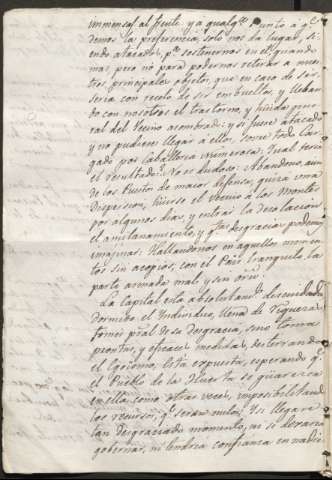 inmensas al frente, y a qualqe. Punto á qe.
demos la preferencia, solo nos da lugar, si
endo atacados, pa. sostenernos en el quando
mas, pero no para podernos retirar a nues
tros principales objetos, que en caso de
seria con recelo de ser embueltos, y lleban
do con nosotros el trastorno, y huida gene
ral del Vecino asombrado: y si fuese atacado
y no pudiese llegar á ellos, sobre todo car
gado por Caballeria numerosa. Qual seria
el resultado? No es dudoso: Abandono, aun
de los Puntos de maior defensa, quiza una
dispersion, huirse el Vecino á los Montes
por algunos dias, y entrar la desolacion
el aniquilamiento, y qtas. desgracias podemos
imaginar. Hallandonos en aquellos momen
tos sin acopios, con el Pais tranquilo, la
parte armada mal, y sin
La Capital esta absolutamte. descuidada
dormido el Individuo, llena de riqueza
pral. de su desgracia, sino toma
prontas, y eficaces medidas, desterrando
el Egoismo. Está expuesta, esperando qe.
el Pueblo de la Huerta se guarezca
en ella, como otras veces, imposibilitando
los recursos, qe. seran nulos. Y si llegara
tan desgraciado momento, ni se dexaria
gobernar, ni tendria confianza en nadie